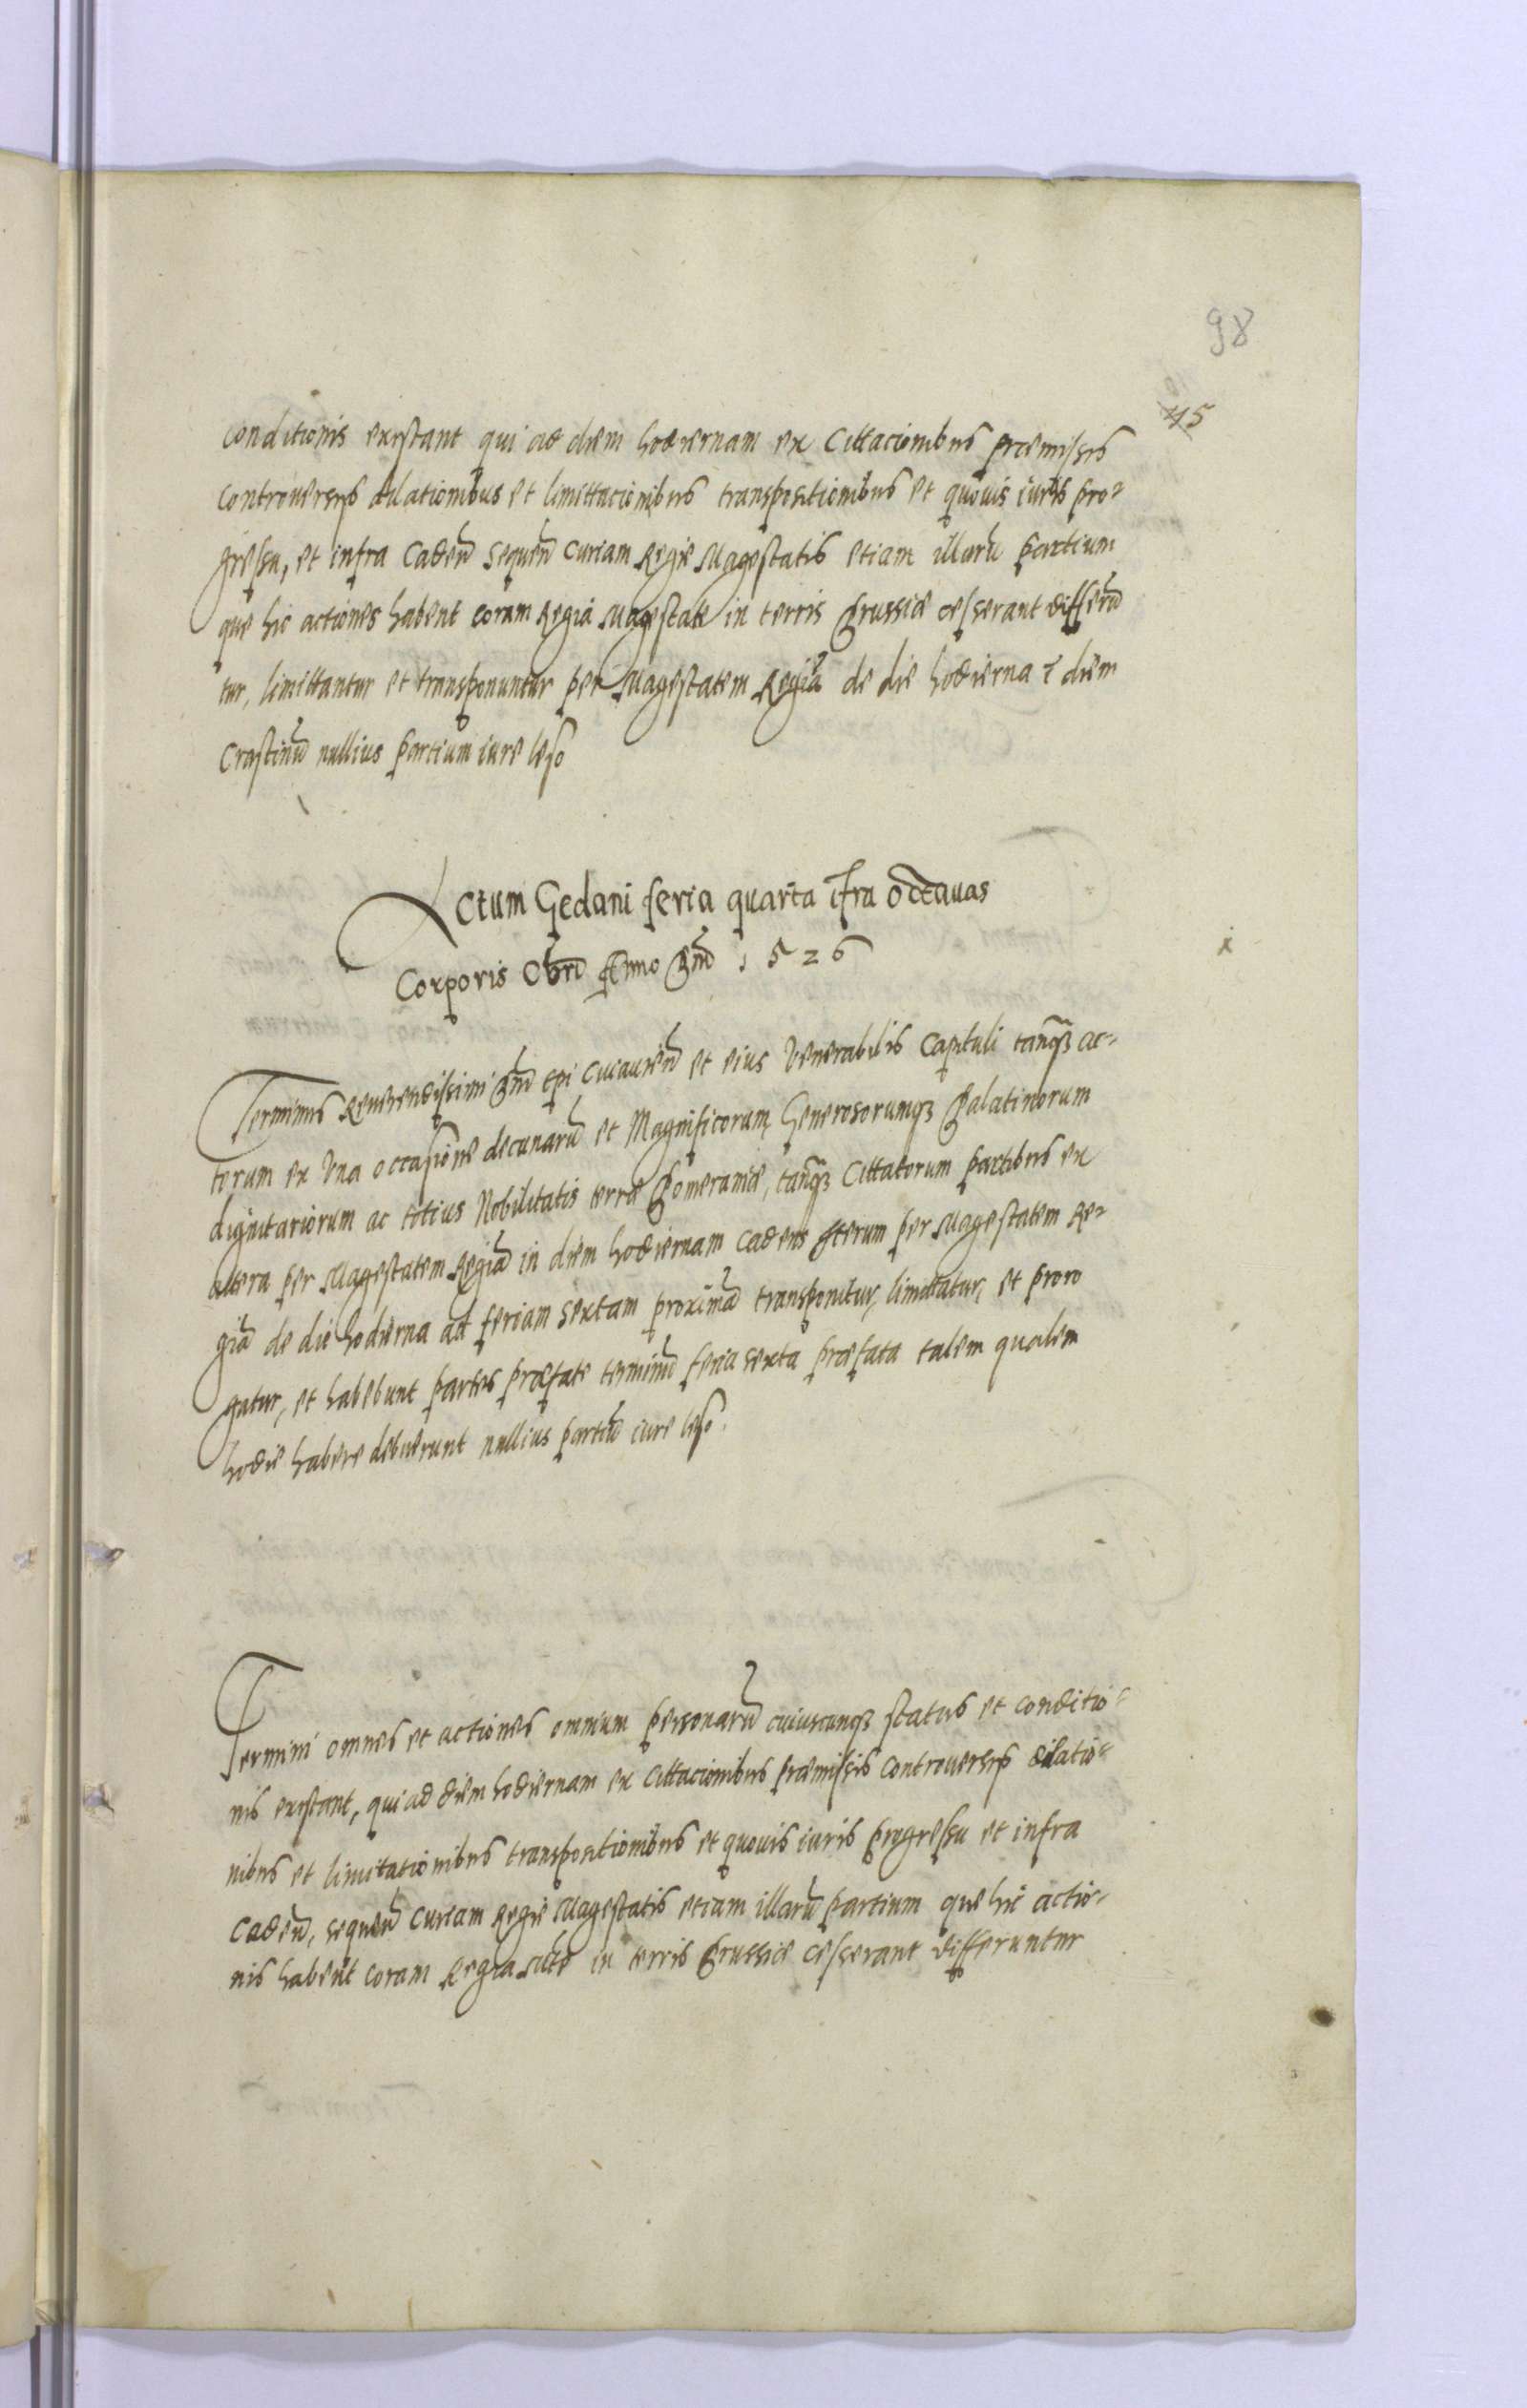 98
45
conditionis existant qui ad diem hodiernam ex Cittacionibus præmissis
controversijs dilationibus et limittacionibus transpositionibus et quovis iuris pro-
gressu, et infra Caden̄ Sequen̄ Curiam Regie Magestatis etiam illarū partium
que hic actiones habent coram Regia Magestate in terris Prussiæ cesserant differū
tur, limittantur et transponuntur per Magestatem Regiā de die hodierna ī diem
Crastinū nullius partium iure leso
Actum Gedani feria quarta īfra octavas
Corporis Chrī Anno Dnī 1526
Terminus Reverendissimi Dnī Epi Cuiavien̄ et eius Venerabilis Capituli tanq̄ꝫ ac-
torum ex Una occasione decimarū et Magnificorum Generosorumqꝫ Palatinorum
dignitariorum ac totius Nobilitatis terræ Pomeraniæ, tanq̄ꝫ Cittatorum partibus ex
altera per Magestatem Regiā in diem hodiernam Cadens iterum per Magestatem Re-
giā de die hodierna ad feriam Sextam proximā transponitur, limittatur, et proro
gatur, et habebunt partes præfate terminū feria sexta præfata talem qualem
hodie habere debuerunt nullius partiū iure leso.
Termini omnes et actiones omnium personarū cuiuscunqꝫ status et conditio-
nis existant, qui ad diem hodiernam ex Cittacionibus præmissis controversijs dilatio-
nibus et limitationibus transpositionibus et quovis iuris progressu et infra
Caden̄, sequen̄ Curiam Regie Magestatis etiam illarū partium que hic actio-
nis habent coram Regia Mte in terris Prussiæ cesserant differuntur